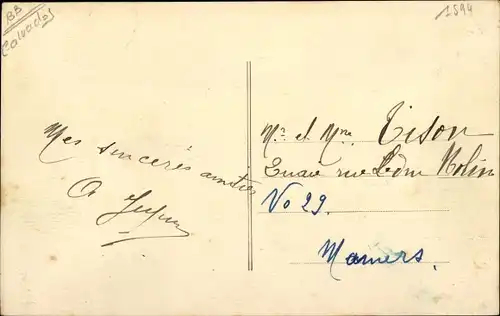 BB
Calvados
1594
Mes sincères amitiés
Mr et Mme Tison
rue Ledru Rolin
No 29.
Mamers.